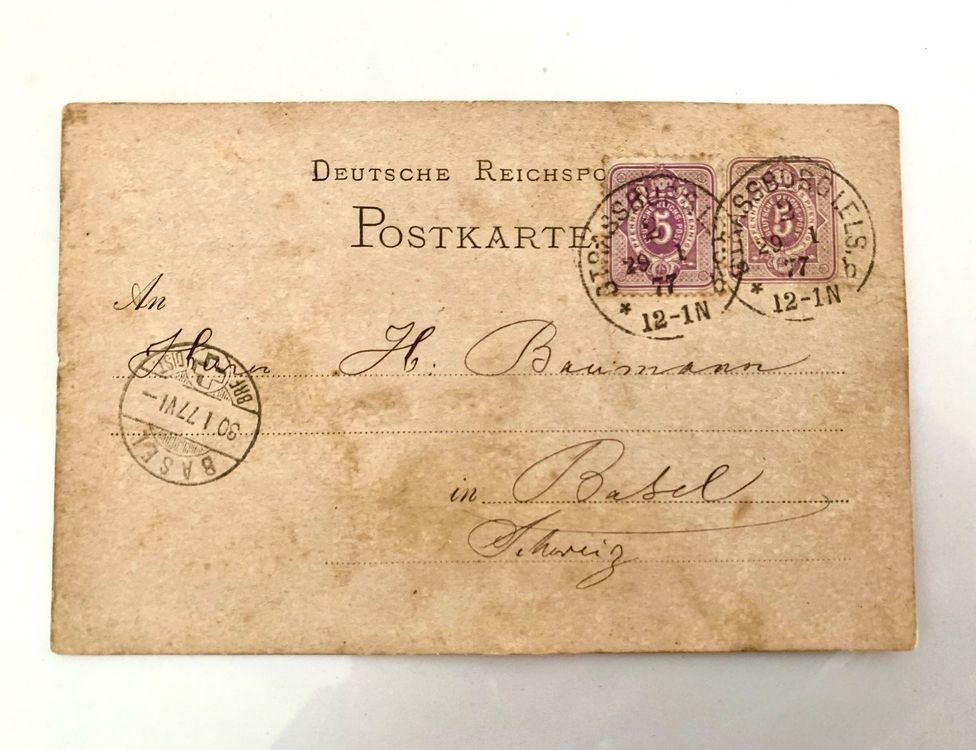 DEUTSCHE REICHSPO
POSTKARTE
STRASSBURG
2
29 1
77
* 12-1N
STRASSBURG I. ELS. b
2
29 1
77
* 12-1N
5
PFENNIG
5
PFENNIG
An
Herrn H. Baumann
in Basel
Schweiz
BASEL
30 I.77 VI-
BRF. DIST.